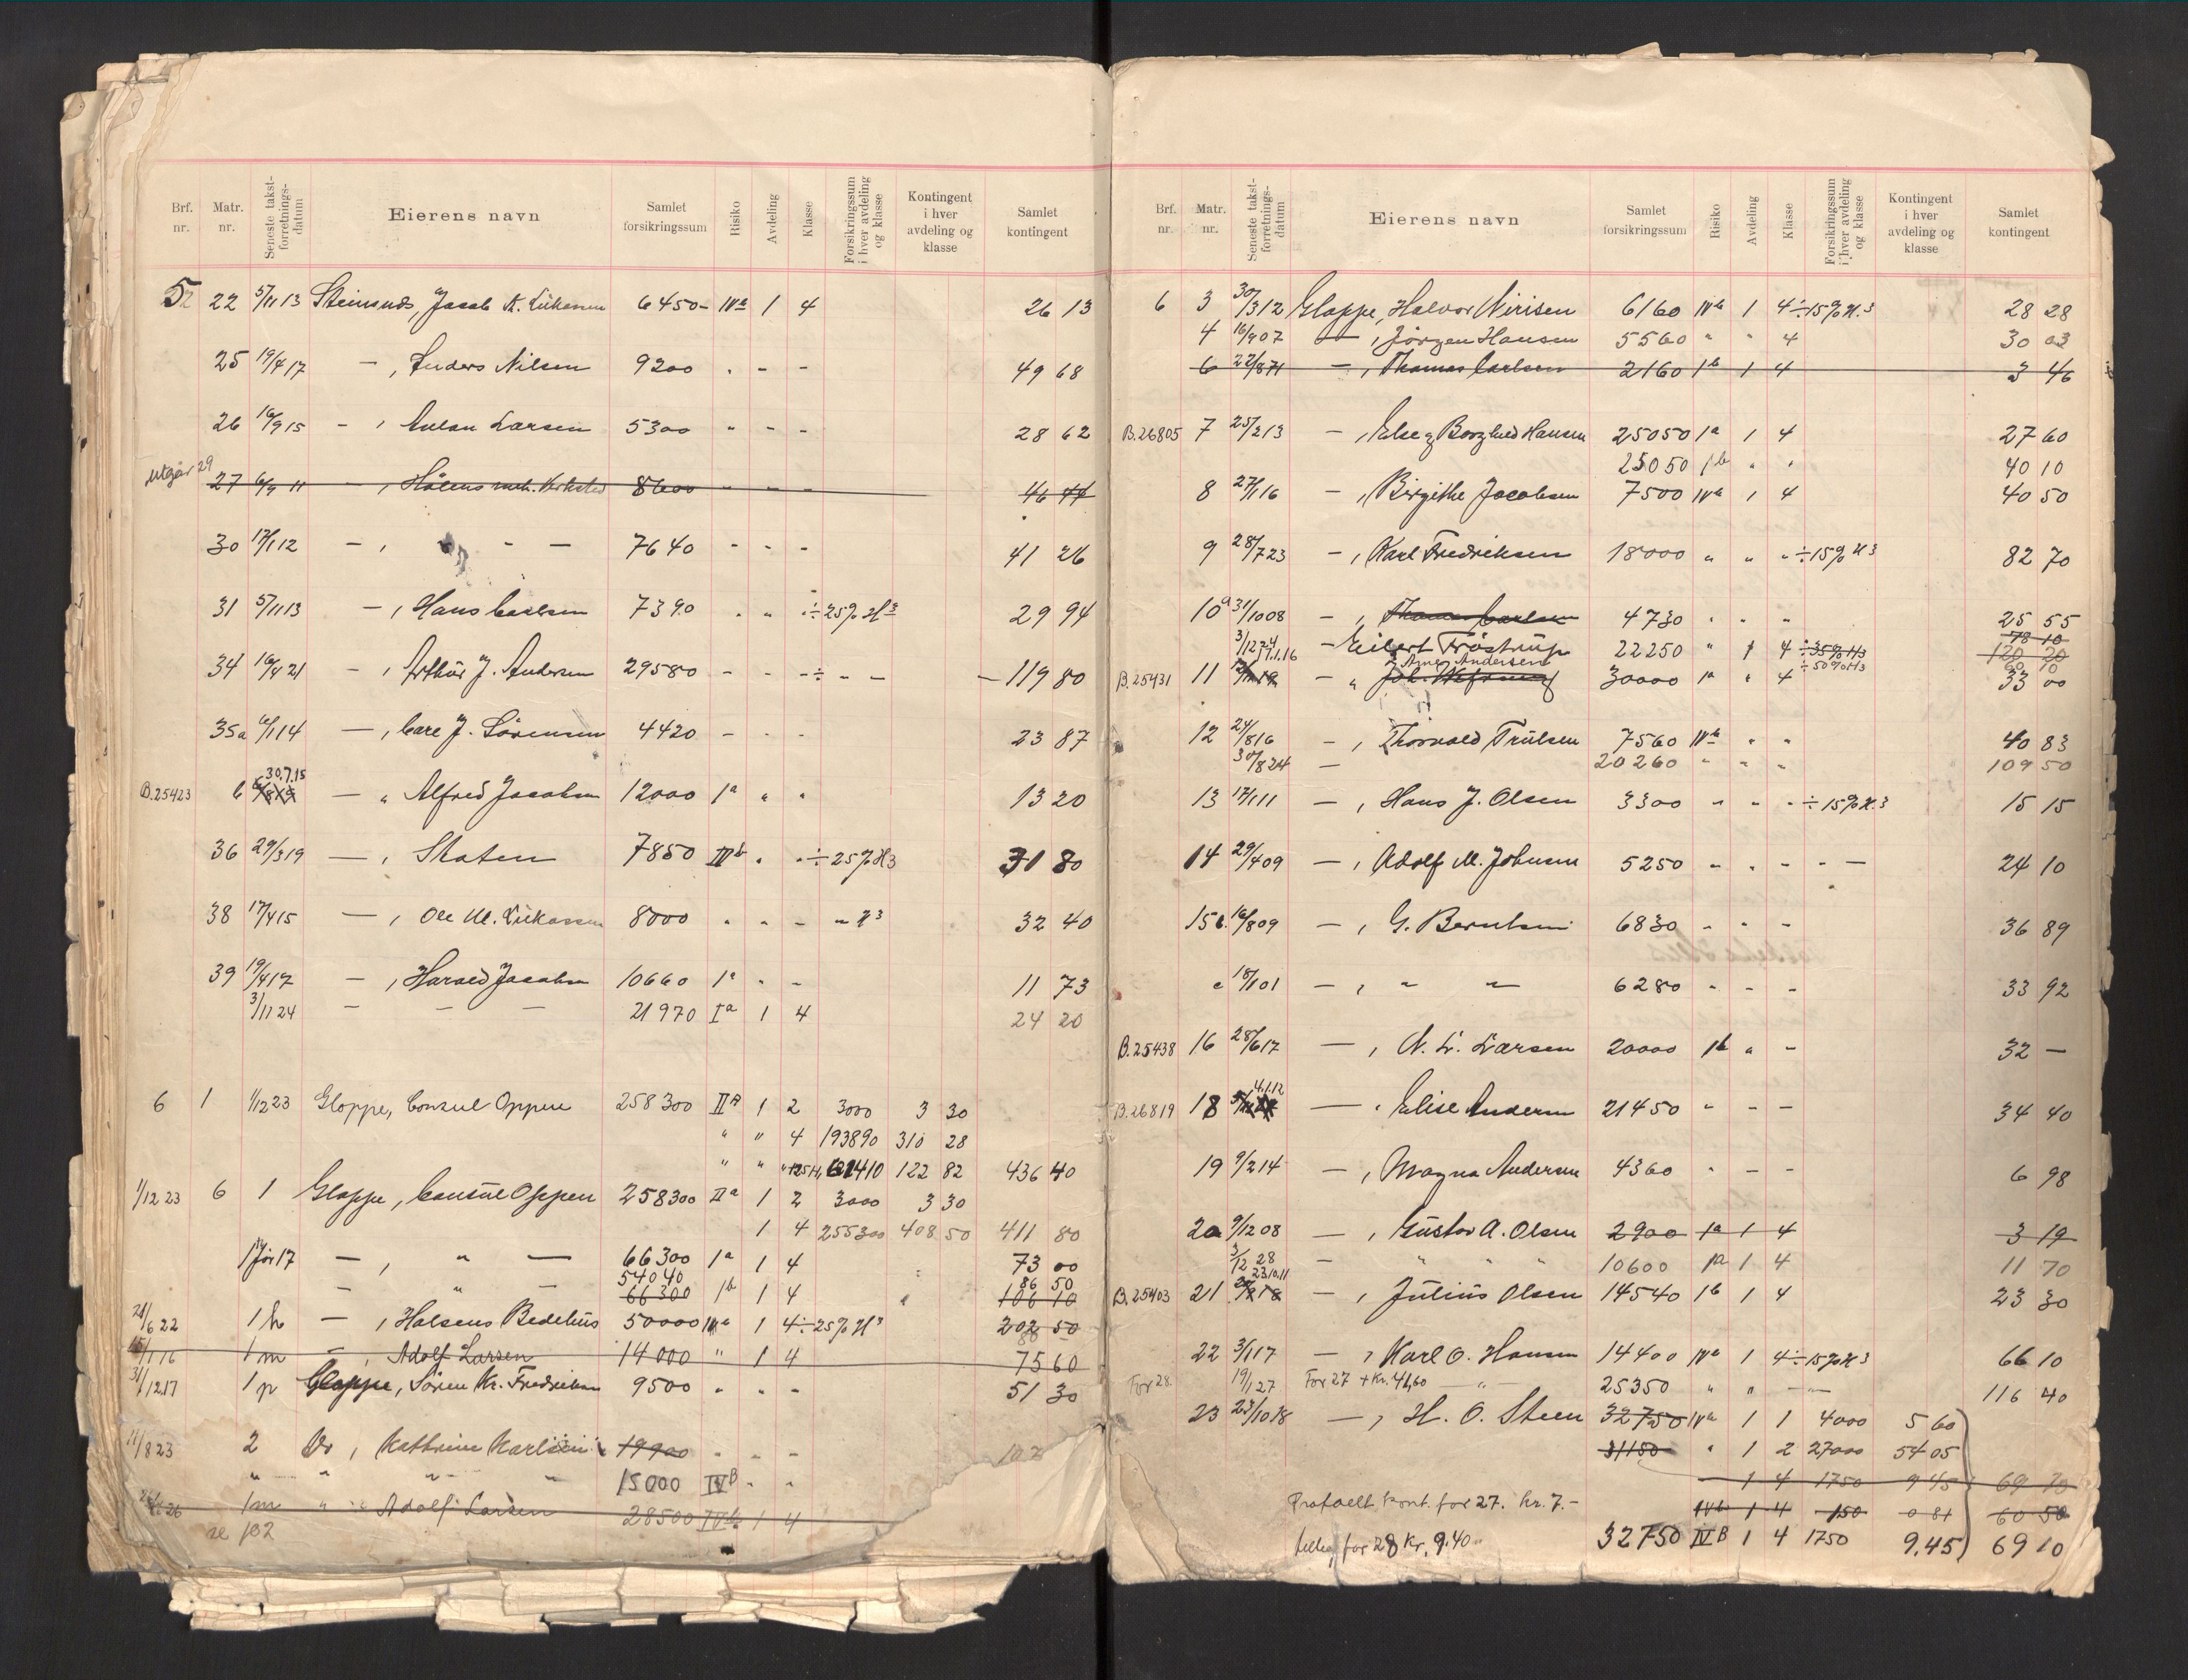 Brf. nr. Matr. nr. Seneste takst-forretnings-datum Eierens navn Samlet forsikringssum Risiko Avdeling Klasse Forsikringssum i hver avdeling og klasse Kontingent i hver avdeling og klasse Samlet kontingent
52 22 5/11 13 Steinsnds, Jacob K. Lükassen 6450 - IVa 1 4 26 13
25 19/4 17 - , Anders Nilsen 9200 " - - 49 68
26 16/9 15 - , Anton Larsen 5300 " - - 28 62
Utgår 29
27 6/9 11 - , Hölens mek. Verksted 8600 - - - 46 44
30 17/1 12 - , " - - 7640 - - - 41 26
31 5/11 13 - , Hans Carlsen 7390 " " " ÷ 25% H3 29 94
34 16/4 21 - , Arthur J. Andersen 29580 - - - ÷ - - 119 80
35a 6/1 14 - , Carl J. Sörensen 4420 - - - 23 87
30.7.15
B.25423 b - " Alfred Jacobsen 12000 1a " " 13 20
36 29/3 19 - , Skolen 7850 IVb " " ÷ 25% H3 31 80
38 17/4 15 - , Ole M. Lükassen 8000 " - - " H3 32 40
39 19/4 17 - , Harald Jacobsen 10660 1a - - 11 73
3/11 24 - - - 21970 Ia 1 4 24 20
6 1 1/12 23 Gloppe, Consul Oppen 258300 IIa 1 2 3000 3 30
" " 4 193890 310 28
" " 61410 122 82 436 40
1/12 23 6 1 Gloppe, Consül Oppen 258300 IIa 1 2 3000 3 30
1 4 255300 408 50 411 80
1 før 17 - , " - 66300 1a 1 4 73 00
54040 86 50
- " - 66300 1b 1 4 106 10
21/6 22 1h - , Hølens Bedehüs 50000 IVa 1 4 ÷ 25% H3 202 50
15/1 16 1m - , Adolf Larsen 14000 " 1 4 75 60
31/12 17 1p Gloppe, Sören Kr. Fredriksen 9500 " " - 51 30
11/8 23 2 Do , Kathrine Karlsen 19900 - - - 107
" " " " 15000 IVB " "
26 1m " " Adolf Larsen 28500 IVb 1 4
se 132
Brf. nr. Matr. nr. Seneste takst-forretnings-datum Eierens navn Samlet forsikringssum Risiko Avdeling Klasse Forsikringssum i hver avdeling og klasse Kontingent i hver avdeling og klasse Samlet kontingent
6 3 30/3 12 Gloppe, Halvor Nirisen 6160 IVb 1 4 ÷ 15% H.3 28 28
4 16/9 07 - , Jörgen Hansen 5560 " " 4 30 03
6 22/8 71 - , Thomas Carlsen 2160 1b 1 4 3 46
B.26805 7 25/2 13 - , Else & Borghild Hansen 25050 1a 1 4 27 60
25050 1b " " 40 10
8 27/1 16 - , Birgithe Jacobsen 7500 IVa 1 4 40 50
9 28/7 23 - , Karl Fredriksen 18000 " " " ÷ 15% H3 82 70
10a 31/10 08 - , Thomas Carlsen 4730 " " " 25 55
78 10
3/12 24 - Eilert Tröstrüp 22250 " 1 4 ÷ 35% H3 120 20
7.1.16 Arne Andersen ÷ 50% H3 60 10
B.25431 11 - " 30000 1a " 4 33 00
12 24/8 16 - , Thorvald Trülsen 7560 IVb " " 40 83
30/8 24 - 20260 " " " 109 50
13 17/1 11 - , Hans J. Olsen 3300 " " " ÷ 15% H.3 15 15
14 29/4 09 - , Adolf M. Johnsen 5250 - " - - - 24 10
15b. 16/8 09 - , G. Berntsen 6830 - " - 36 89
c 18/1 01 - , " " 6280 " - - 33 92
B.25438 16 28/6 17 - , A. L. Larsen 20000 1b " - 32 -
4.1.12
B.26819 18 - " Elise Andersen 21450 " - - 34 40
19 9/2 14 - , Magna Andersen 4360 " - - 6 98
20 9/12 08 - , Güstav A. Olsen 2900 1a 1 4 3 19
3/12 28 - " " 10600 1a 1 4 11 70
23.10.11
B.25403 21 - , Jülius Olsen 14540 1b 1 4 23 30
22 3/1 17 - , Karl O. Hansen 14400 IVa 1 4 ÷ 15% H3 66 10
For 28. 19/1 27 For 27 + Kr. 41,60 - " - 25350 " " - - 116 40
23 23/10 18 - , H. O. Steen 32750 IVa 1 1 4000 5 60
31150 " 1 2 27000 54 05
- 1 4 1750 9 45 69 10
Prot. ælt kont. for 27. kr. 7.- IVb 1 4 150 0 81 60 50
for 28 Kr. 9.40 32750 IVB 1 4 1750 9.45 69 10